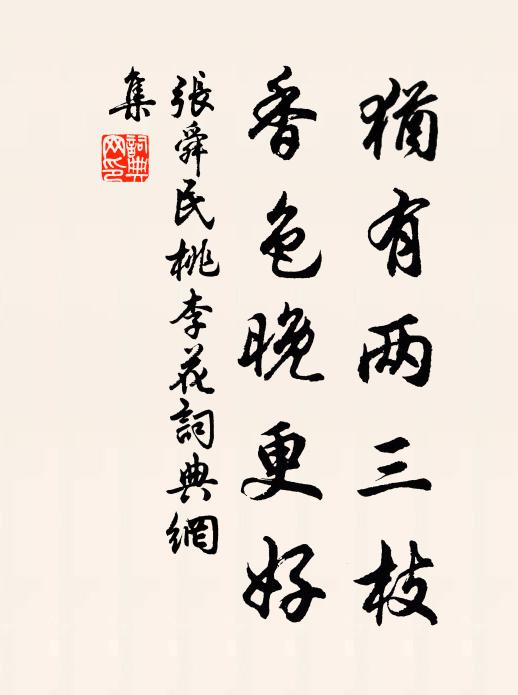 猶有两三枝
香色晚更好
張舜民桃李花詞典網
集
詞典
网印